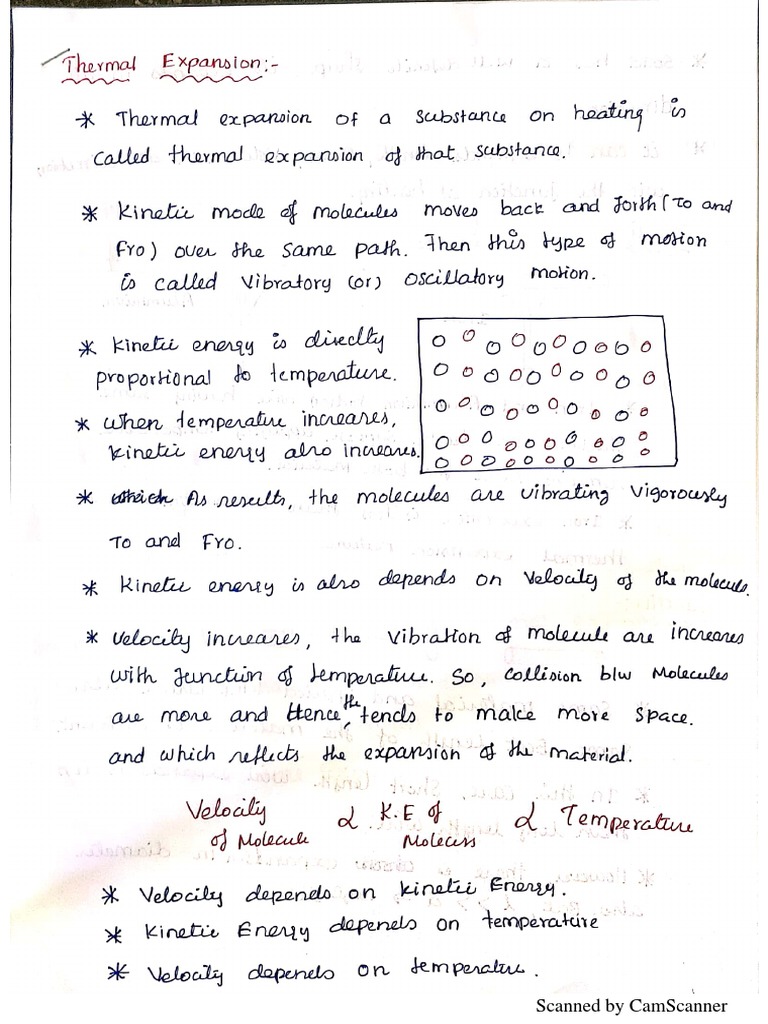 Thermal Expansion:-
* Thermal expansion of a substance on heating is
called thermal expansion of that substance.
* Kinetic mode of molecules moves back and forth (To and
Fro) over the same path. Then this type of motion
is called Vibratory (or) Oscillatory motion.
* Kinetic energy is directly
proportional to temperature.
* When temperature increases,
kinetic energy also increases.
* which As results, the molecules are vibrating vigorously
To and Fro.
* Kinetic energy is also depends on Velocity of the molecule.
* Velocity increases, the vibration of molecule are increases
with function of temperature. So, collision b/w Molecules
are more and Hence, the tends to make more space.
and which reflects the expansion of the material.
Velocity of Molecule α K.E of Moleciss α Temperature
* Velocity depends on kinetic Energy.
* Kinetic Energy depends on temperature
* Velocity depends on temperature.
Scanned by CamScanner